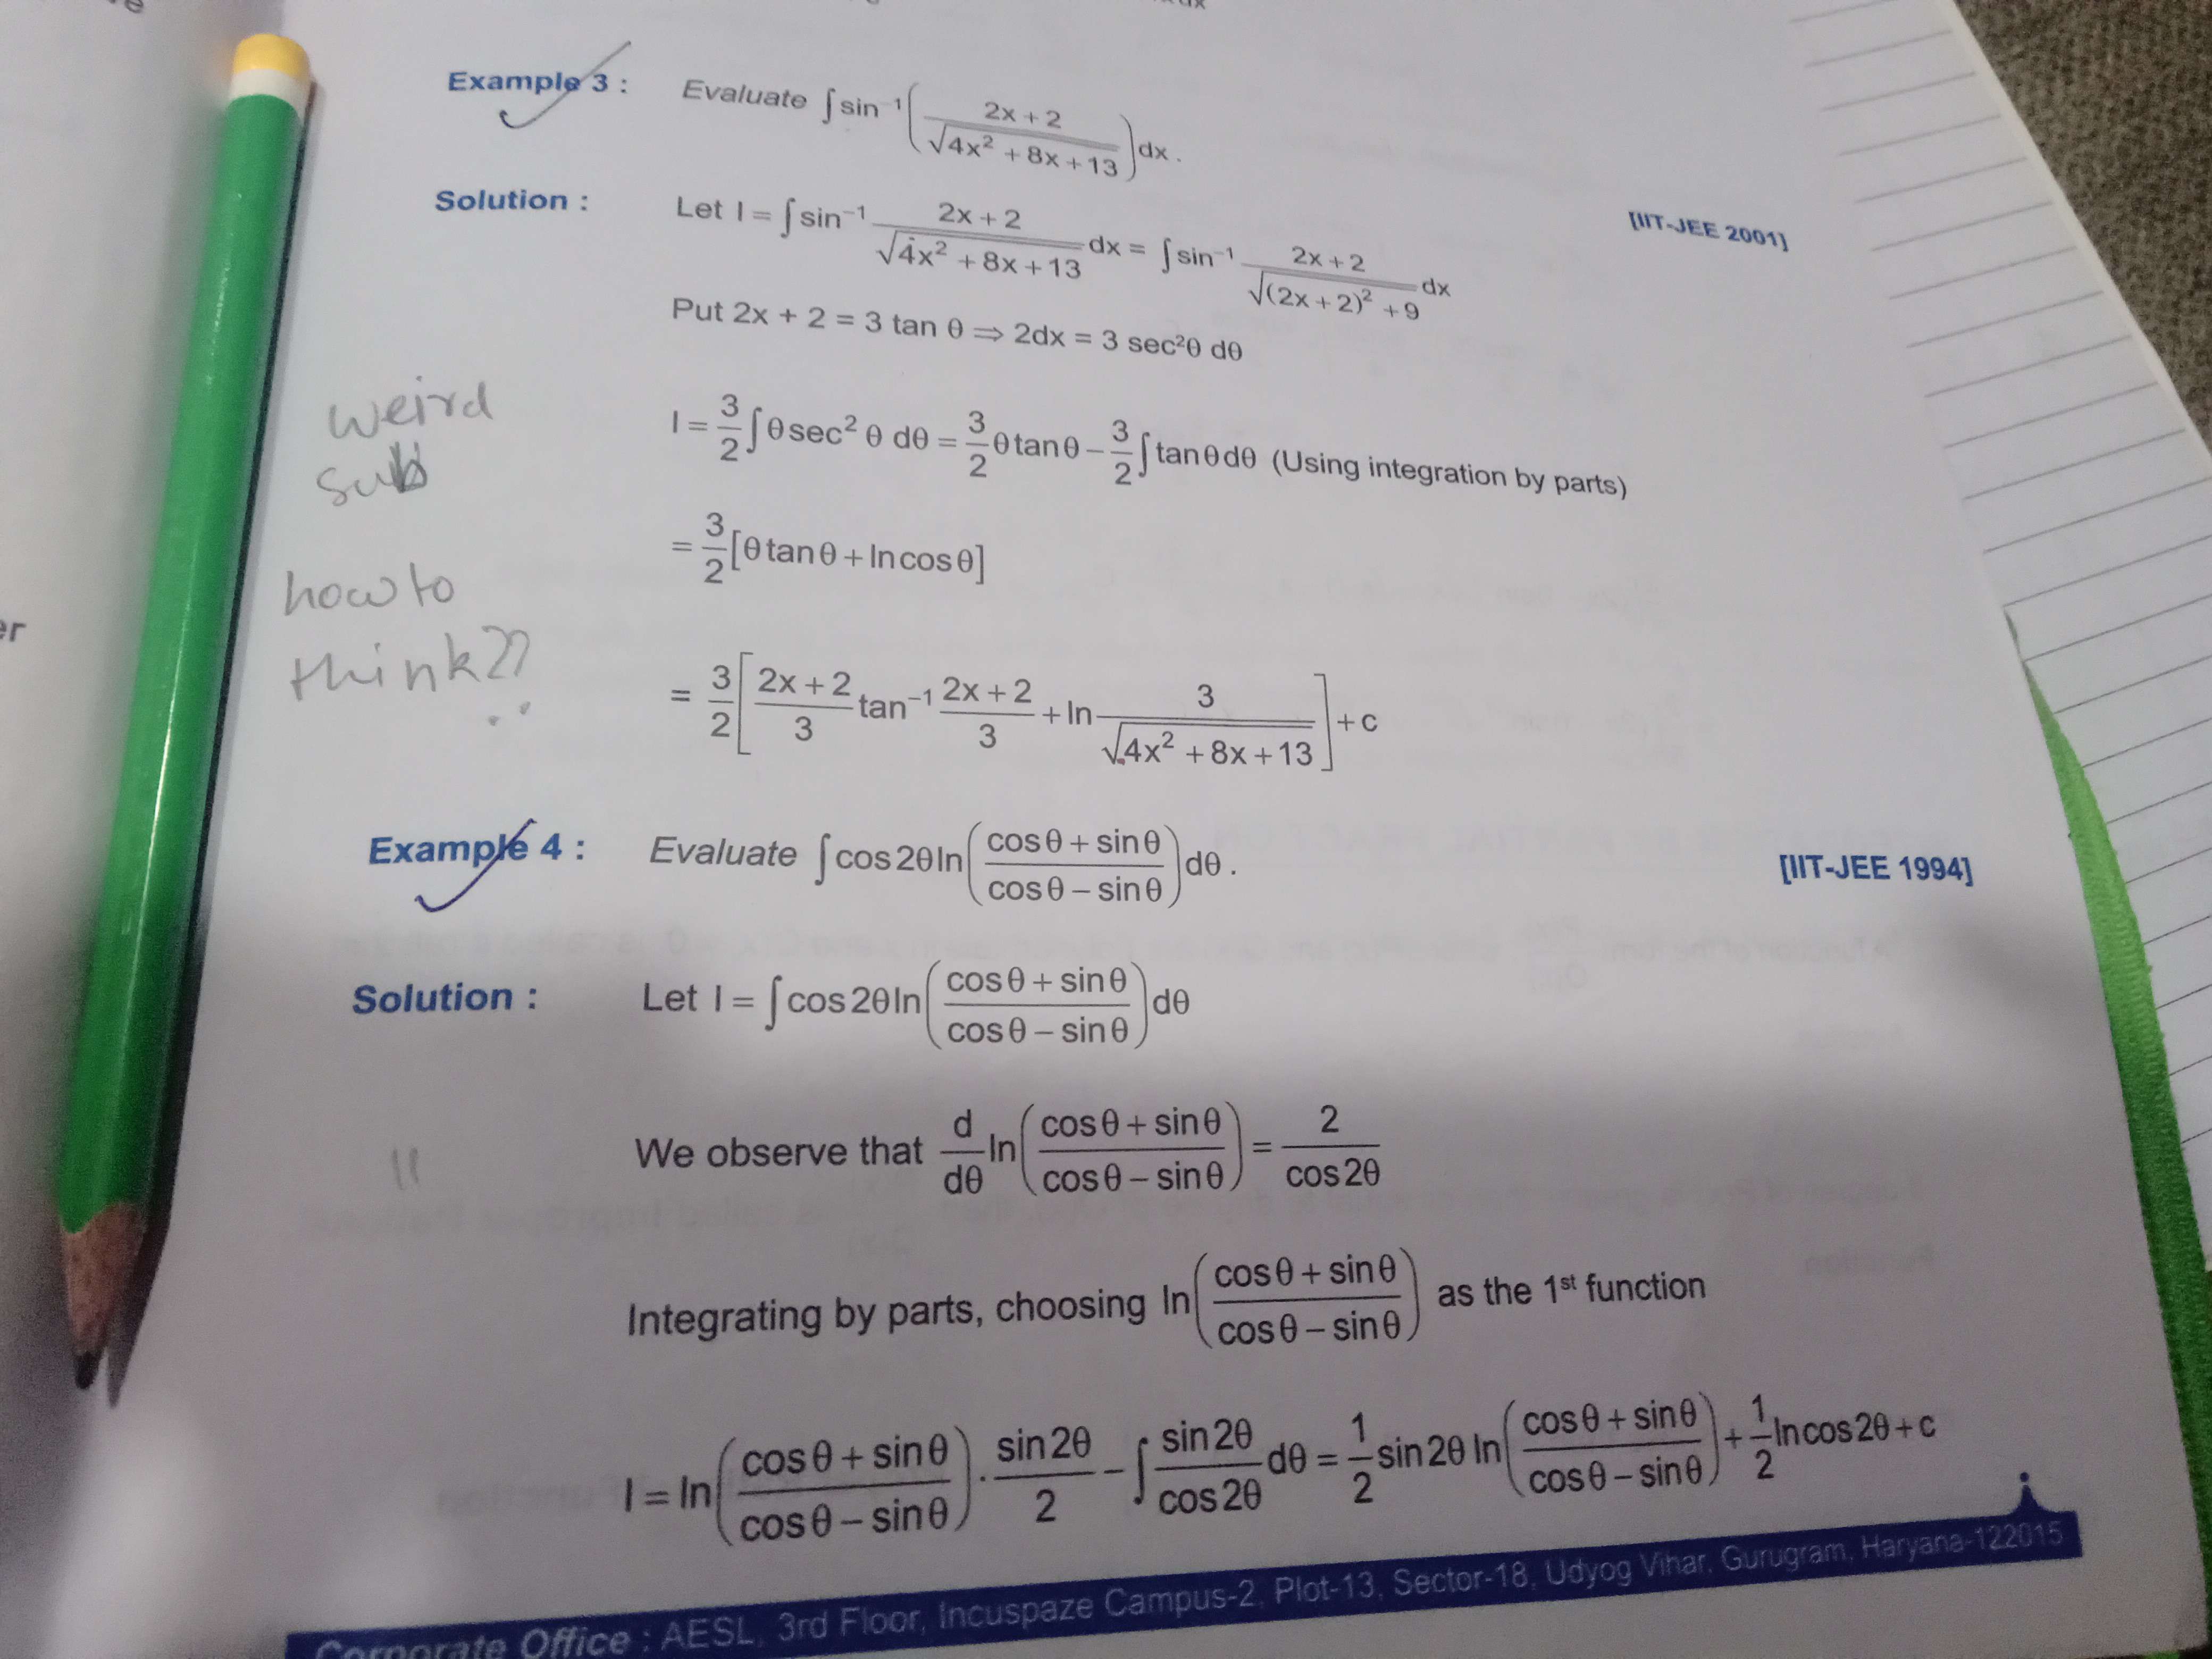 Example 3 : Evaluate ∫ sin⁻¹((2x + 2)/√(4x² + 8x + 13)) dx .
[IIT-JEE 2001]
Solution : Let I = ∫ sin⁻¹ (2x + 2)/√(4x² + 8x + 13) dx = ∫ sin⁻¹ (2x + 2)/√((2x + 2)² + 9) dx
Put 2x + 2 = 3 tan θ ⇒ 2dx = 3 sec²θ dθ
weird
sub
I = 3/2 ∫ θ sec² θ dθ = 3/2 θ tan θ − 3/2 ∫ tan θ dθ (Using integration by parts)
= 3/2 [θ tan θ + ln cos θ]
how to
think??
= 3/2 [(2x + 2)/3 tan⁻¹ (2x + 2)/3 + ln 3/√(4x² + 8x + 13)] + c
Example 4 : Evaluate ∫ cos 2θ ln((cos θ + sin θ)/(cos θ − sin θ)) dθ . [IIT-JEE 1994]
Solution : Let I = ∫ cos 2θ ln((cos θ + sin θ)/(cos θ − sin θ)) dθ
We observe that d/dθ ln((cos θ + sin θ)/(cos θ − sin θ)) = 2/cos 2θ
Integrating by parts, choosing ln((cos θ + sin θ)/(cos θ − sin θ)) as the 1st function
I = ln((cos θ + sin θ)/(cos θ − sin θ)) . sin 2θ/2 − ∫ sin 2θ/cos 2θ dθ = 1/2 sin 2θ ln((cos θ + sin θ)/(cos θ − sin θ)) + 1/2 ln cos 2θ + c
Corporate Office : AESL, 3rd Floor, Incuspaze Campus-2, Plot-13, Sector-18, Udyog Vihar, Gurugram, Haryana-122015